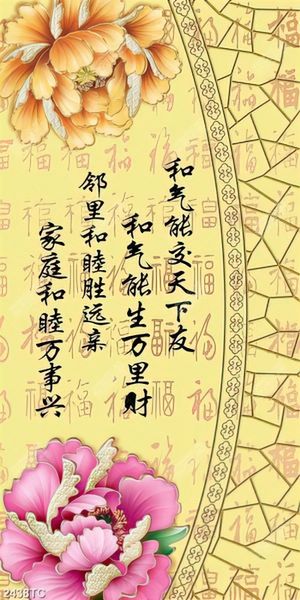 和气能交天下友
和气能生万里财
邻里和睦胜远亲
家庭和睦万事兴
福
2438TC